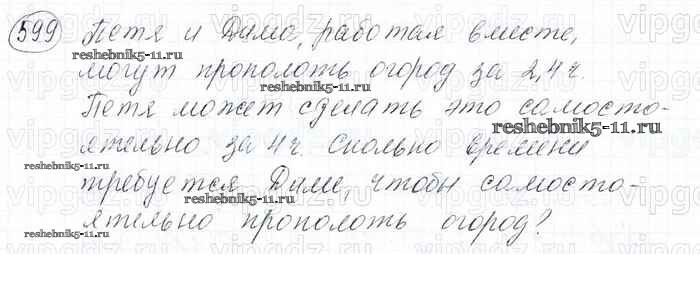 599 Петя и Дима, работая вместе,
могут прополоть огород за 2,4 ч.
Петя может сделать это самосто-
ятельно за 4 ч. Сколько времени
требуется Диме, чтобы самосто-
ятельно прополоть огород?
reshebnik5-11.ru
reshebnik5-11.ru
reshebnik5-11.ru
reshebnik5-11.ru
reshebnik5-11.ru
reshebnik5-11.ru
reshebnik5-11.ru